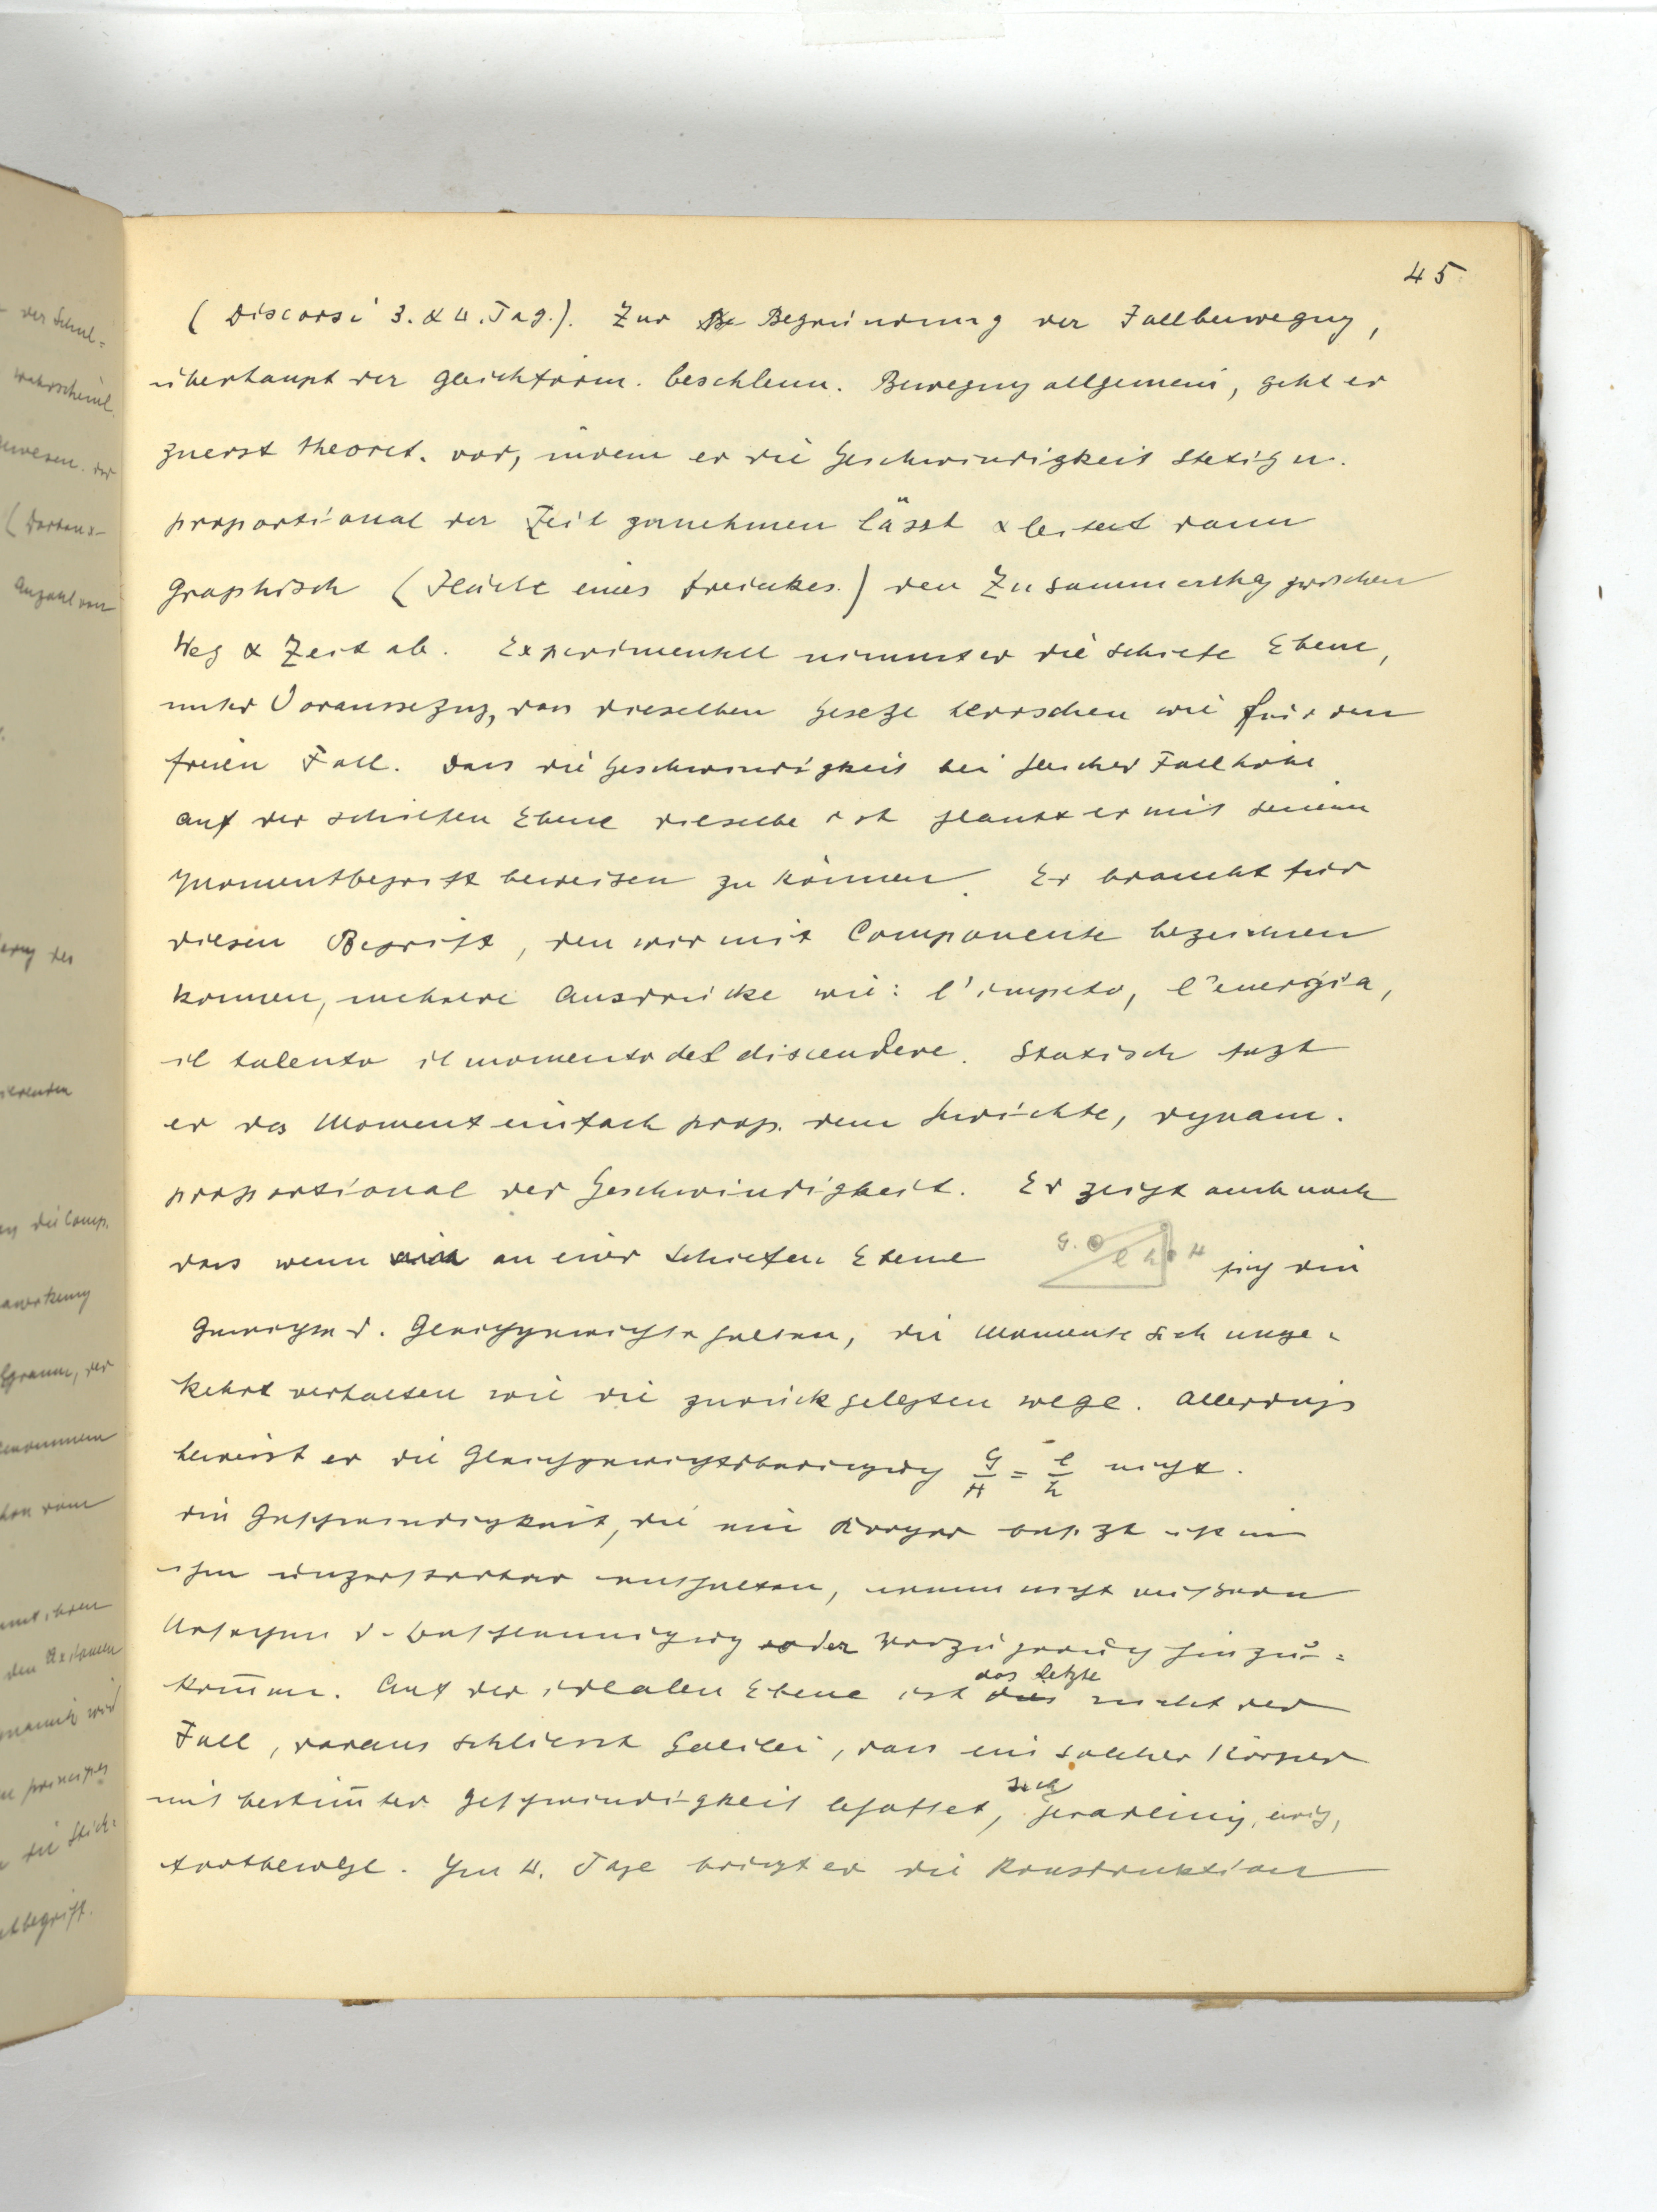 45
(Discorsi 3. & 4. Tag.). Zur Be Begründung der Fallbewegung,
überhaupt der gleichförm. beschleun. Bewegung allgemein, geht er
zuerst theoret. vor, indem er die Geschwindigkeit stetig u.
proportional der Zeit zunehmen lässt & leitet dann
graphisch (Fläche eines Dreieckes.) den Zusammenhg zwischen
Weg & Zeit ab. Experimentell nimmt er die schiefe Ebene,
unter Voraussezug, dass dieselben Geseze herrschen wie für den
freien Fall. Dass die Geschwindigkeit bei gleicher Fallhöhe
auf der schiefen Ebene dieselbe ist glaubt er mit seinem
Momentbegriff beweisen zu können. Er braucht für
diesen Begriff, den wir mit Componente bezeichnen
können, mehrere Ausdrücke wie: l'impeto, l'energia,
il talento il momento del discendere. Statisch sezt
er das Moment einfach prop. dem Gewichte, dynam.
proportional der Geschwindigkeit. Er zeigt auch noch
dass wenn an einer schiefen Ebene G. l h H sich die
Gewichte d. Gleichgewichte halten, die Momente sich umge-
kehrt verhalten wie die zurückgelegten Wege. Allerdings
beweist er die Gleichgewichtsbedingung G/H = l/h nicht.
Die Geschwindigkeit, die ein Körper besizt ist in
ihm unzerstörbar enthalten, wenn nicht äußere
Ursachen d. Beschleunigung oder Verzögerung hinzu=
kom̅en. Auf der idealen Ebene ist das letzte nicht der
Fall, daraus schliesst Galilei, dass ein solcher Körper
mit bestim̅ter Geschwindigkeit behaftet, sich geradlinig, ewig,
fortbewege. Im 4. Tage bringt er die Konstruktion